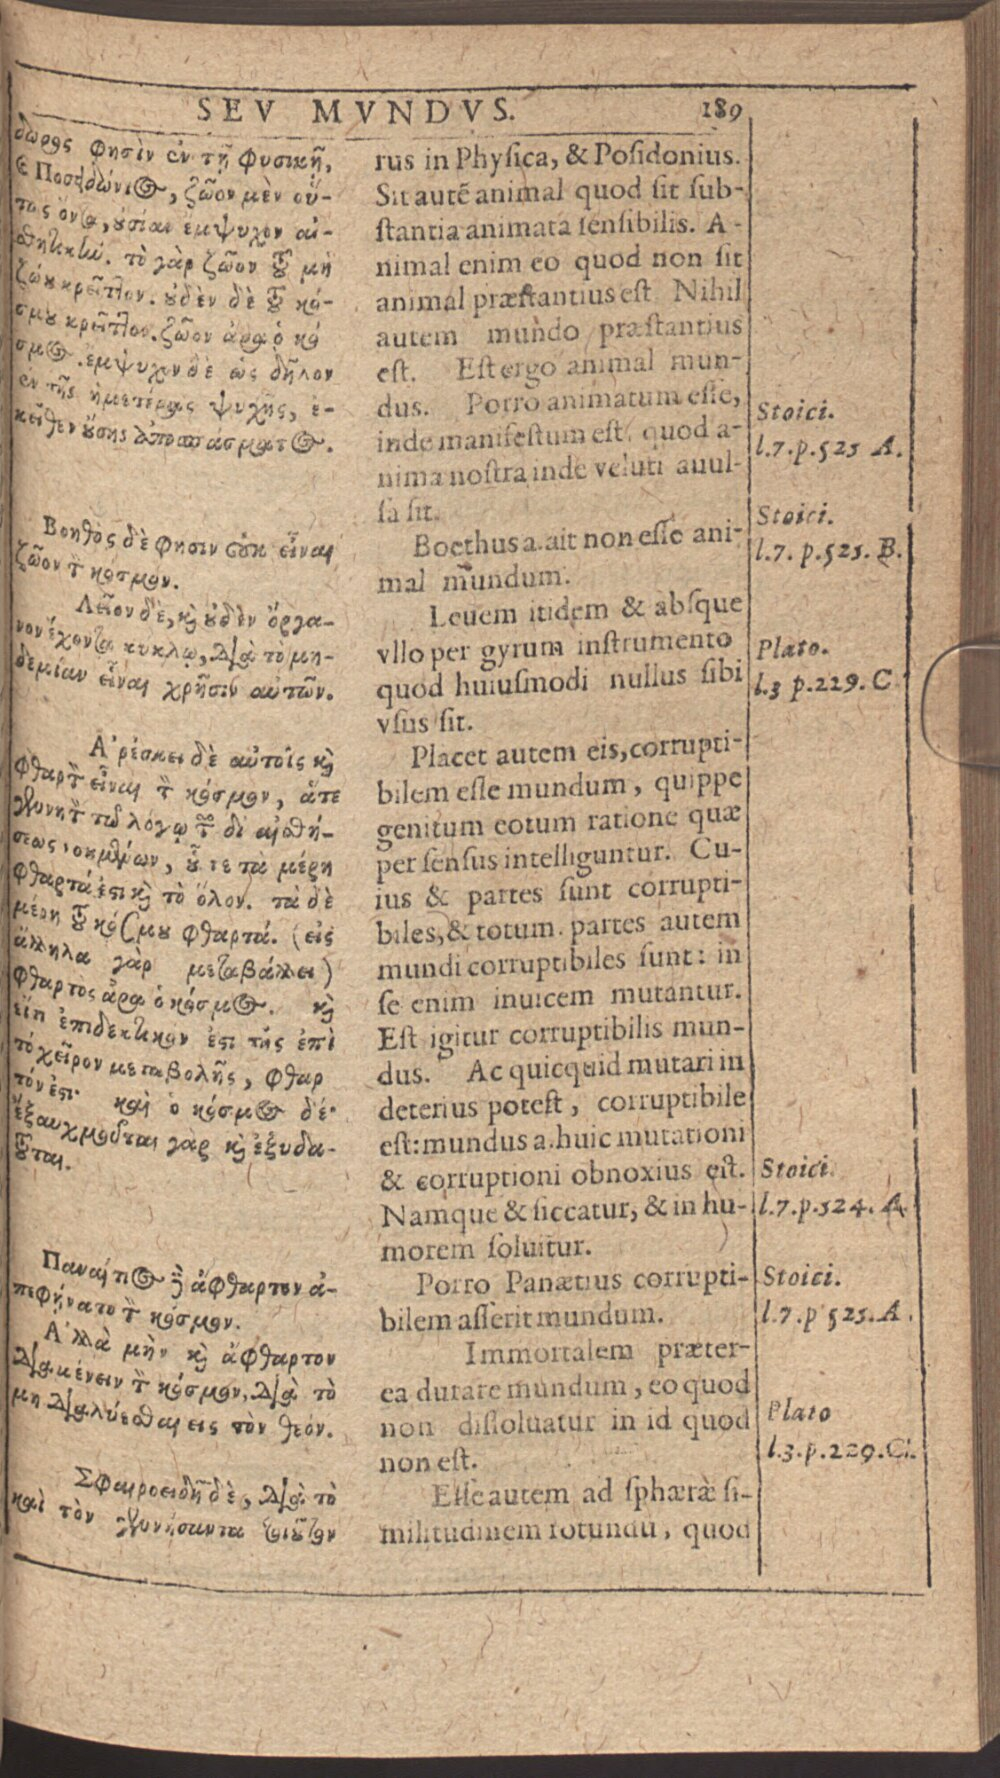 SEV MVNDVS. 189
δωρος φησὶν ἐν τῇ φυσικῇ,
ϗ Ποσειδώνιος, ζῶον μὲν οὕ-
τως ὄντα, ουσίαν ἔμψυχον αἰ-
σθητικὴν. τὸ γὰρ ζῶον τοῦ μὴ
ζώου κρεῖττον. οὐδὲν δὲ τοῦ κό-
σμου κρεῖττον. ζῶον ἄρα ὁ κό
σμος. ἔμψυχον δὲ ὡς δῆλον
ἐν τῆς ἡμετέρας ψυχῆς, ἐ-
κεῖθεν οὔσης ἀποσπάσματος.
Βοηθὸς δὲ φησιν οὐκ εἶναι
ζῶον τὸν κόσμον.
Λεῖον δὲ, ϗ οὐδὲν ὄργα-
νον ἔχοντα κύκλῳ, διὰ τὸ μη-
δεμίαν εἶναι χρῆσιν αὐτῶν.
Α᾿ρέσκει δὲ αὐτοῖς ϗ
φθαρτὸν εἶναι τὸν κόσμον, ἅτε
γεννητὸν τῷ λόγῳ τῶν δι αἰσθή-
σεως νοουμένων, οὗ τε τὰ μέρη
φθαρτά ἐστι ϗ τὸ ὅλον. τὰ δὲ
μέρη τοῦ κόσμου φθαρτά. (εἰς
ἄλληλα γὰρ μεταβάλλει)
φθαρτὸς ἄρα ὁ κόσμος. ϗ
εἴη ἐπιδεκτικὸν ἐστι τῆς ἐπὶ
τὸ χεῖρον μεταβολῆς, φθαρ
τόν ἐστι· καὶ ὁ κόσμος δέ·
ἐξαυχμοῦται γὰρ ϗ ἐξυδα-
τοῦται.
Παναίτιος δ' ἄφθαρτον ἀ-
πεφήνατο τὸν κόσμον.
Α᾿λλὰ μὴν ϗ ἄφθαρτον
διαμένειν τὸν κόσμον, διὰ τὸ
μη διαλύεσθαι εις τὸν θεόν.
Σφαιροειδῆ δὲ, διὰ τὸ
καὶ τὸν γεννήσαντα τοιοῦτον
rus in Physica, & Posidonius.
Sit autē animal quod sit sub-
stantia animata sensibilis. A-
nimal enim eo quod non sit
animal præstantius est Nihil
autem mundo præstantius
est. Est ergo animal mun-
dus. Porro animatum esse,
inde manifestum est, quod a-
nima nostra inde veluti auul-
sa sit.
Boethus a. ait non esse ani-
mal mundum.
Leuem itidem & absque
vllo per gyrum instrumento
quod huiusmodi nullus sibi
vsus sit.
Placet autem eis, corrupti-
bilem esse mundum, quippe
genitum eotum ratione quæ
per sensus intelliguntur. Cu-
ius & partes sunt corrupti-
biles, & totum. partes autem
mundi corruptibiles sunt: in
se enim inuicem mutantur.
Est igitur corruptibilis mun-
dus. Ac quicquid mutari in
deterius potest, corruptibile
est: mundus a. huic mutationi
& corruptioni obnoxius est.
Namque & siccatur, & in hu-
morem soluitur.
Porro Panætius corrupti-
bilem asserit mundum.
Immortalem præter-
ea durare mundum, eo quod
non dissoluatur in id quod
non est.
Esse autem ad sphæræ si-
militudinem rotundū, quod
Stoici.
l.7.p.525 A.
Stoici.
l.7. p.525. B.
Plato.
l.3 p.229. C
Stoici.
l.7.p.524. A
Stoici.
l.7.p 525.A.
Plato
l.3.p.229.C.